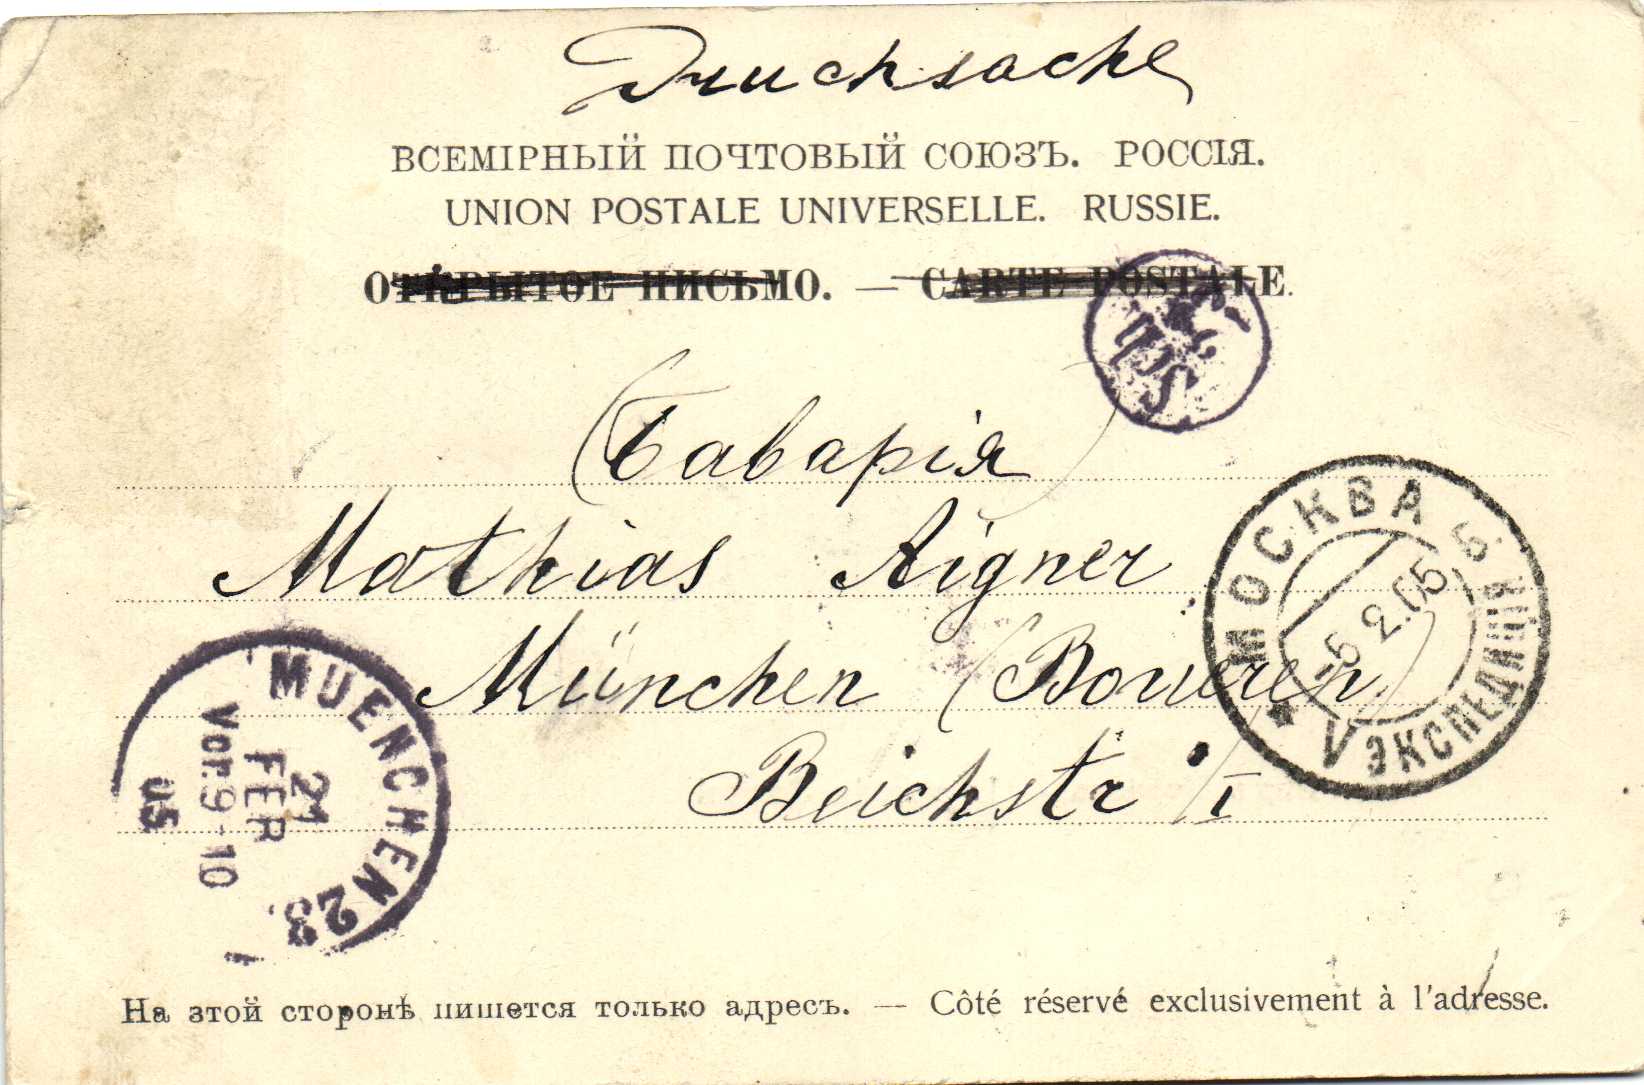 Druchsache
ВСЕМІРНЫЙ ПОЧТОВЫЙ СОЮЗЪ. РОССІЯ.
UNION POSTALE UNIVERSELLE. RUSSIE.
ОТКРЫТОЕ ПИСЬМО. — CARTE POSTALE.
(Баварія)
Mathias Aigner
München (Boueren)
Beichstr I
МОСКВА 5.
V ЭКСПЕДИЦІЯ
-5.2.05
MUENCHEN 23.
21
FEB
Vor.9-10
05
На этой сторонѣ пишется только адресъ. — Côté réservé exclusivement à l'adresse.